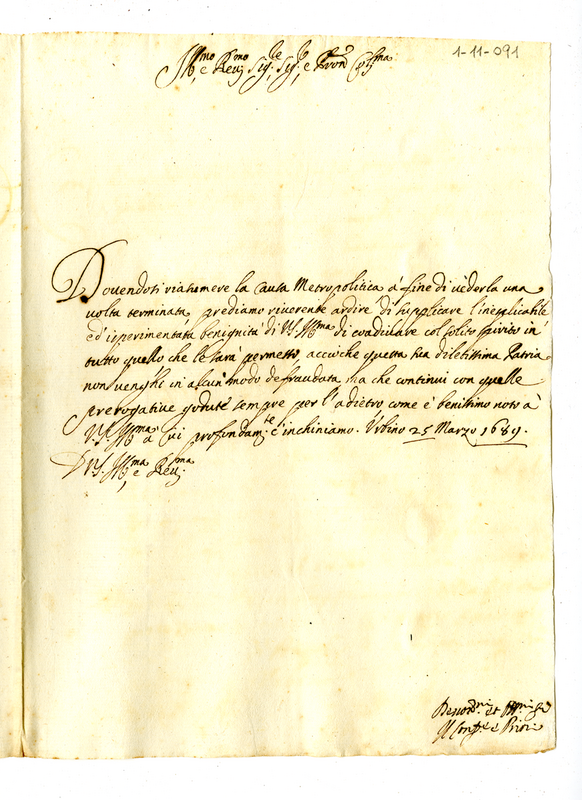 1-11-091
Ill.mo e Rev.mo Sig.re Sig.re e Pron Col.mo
Dovendosi riasumere la Causa Metropolitica à fine di vederla una
volta terminata prediamo riverente ardire di supplicare l'inesplicabile
ed' isperimentata benignità di V.S. Ill.ma di coadiuvare col solito spirito in
tutto quello che le sarà permesso, acciòche questa sua diletissima Patria
non venghi in alcun modo defraudata ma che continui con quelle
prerogative godute sempre per l'adietro come è benissimo noto à
V.S. Ill.ma a cui profondam.te c'inchiniamo. Urbino 25 Marzo 1689.
D V.S. Ill.ma e Rev.ma
Il Conf.re e Priori